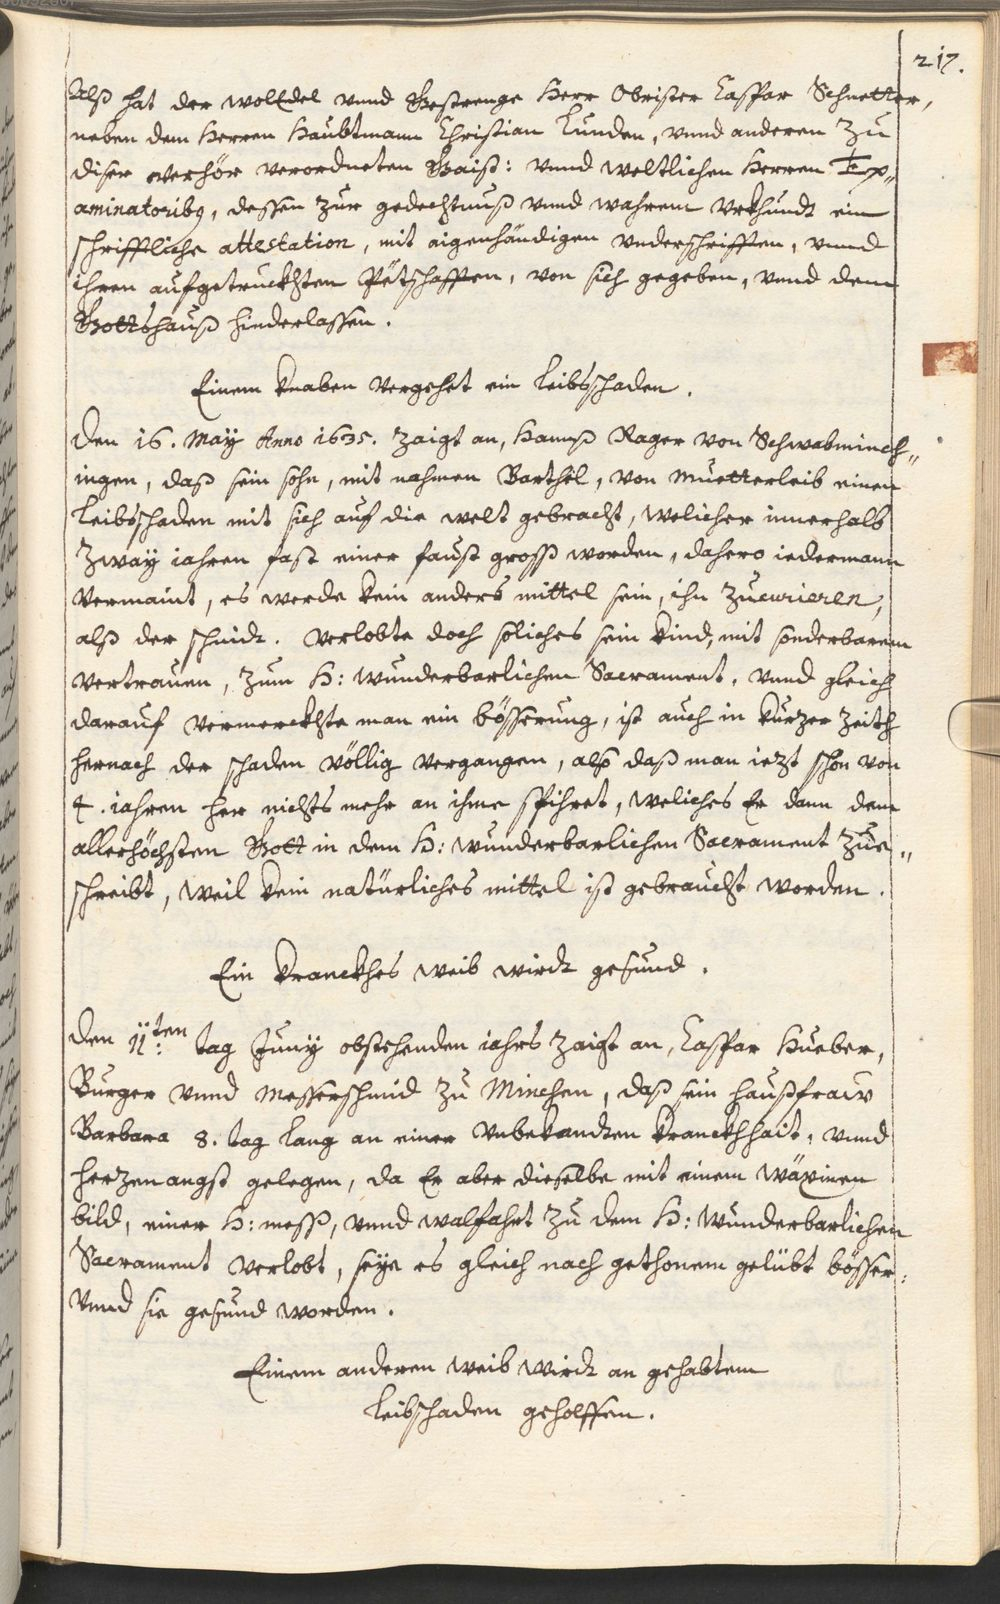 217.
Alß hat der wolEdel vnnd Gestrenge Herr Obrister Caspar Schnetter,
neben dem Herren Haubtmann Christian Lunden, vnnd anderen zu
diser verhör verordneten Gaist: vnnd weltlichen Herren Ex„
aminatoribꝰ, dessen zur gedechtnuß vnnd wahrem Vrkhundt ein
schrifftliche attestation, mit aigenhändigen vnderschrifften, vnnd
ihren aufgetruckhten Pëtschafften, von sich gegeben, vnnd dem
Gottshauß hinderlassen.
Einem knaben vergehet ein leibsschaden.
Den 16. Maÿ Anno 1635. zaigt an, Hannß Rager von Schwabminch„
ingen, daß sein sohn, mit nahmen Barthel, von muetterleib einen
leibsschaden mit sich auf die welt gebracht, welicher innerhalb
zway iahren fast einer faust groß worden, dahero iedermann
vermaint, es werde kein anders mittel sein, ihn zuecurieren,
alß der schnidt. Verlobte doch soliches sein kind, mit sonderbarem
vertrauen, zum H: wunderbarlichen Sacrament, vnnd gleich
darauf vermerckhte man ein bösserung, ist auch in kurzer zeith
hernach der schaden völlig vergangen, also daß man iezt schon von
4. iahren her nichts mehr an ihme spihret, weliches Er dann dem
allerhöchsten Gott in dem H: wunderbarlichen Sacrament zue„
schreibt, weil kein natürliches mittel ist gebraucht worden.
Ein kranckhes weib wirdt gesund.
Den 11.ten tag Junÿ obstehenden iahrs zaigt an, Caspar Hueber,
Burger vnnd Messerschmid zu Minchen, daß sein haußfraw
Barbara 8. tag lang an einer vnbekandten kranckhait, vnnd
herzenangst gelegen, da Er aber dieselbe mit einem wäxinen
bild, einer H: meß, vnnd walfahrt zu dem H: Wunderbarlichen
Sacrament verlobt, seÿe es gleich nach gethonem gelübt bösser:
vnnd sie gesund worden.
Einem anderen weib wirdt an gehabtem
leibschaden geholffen.